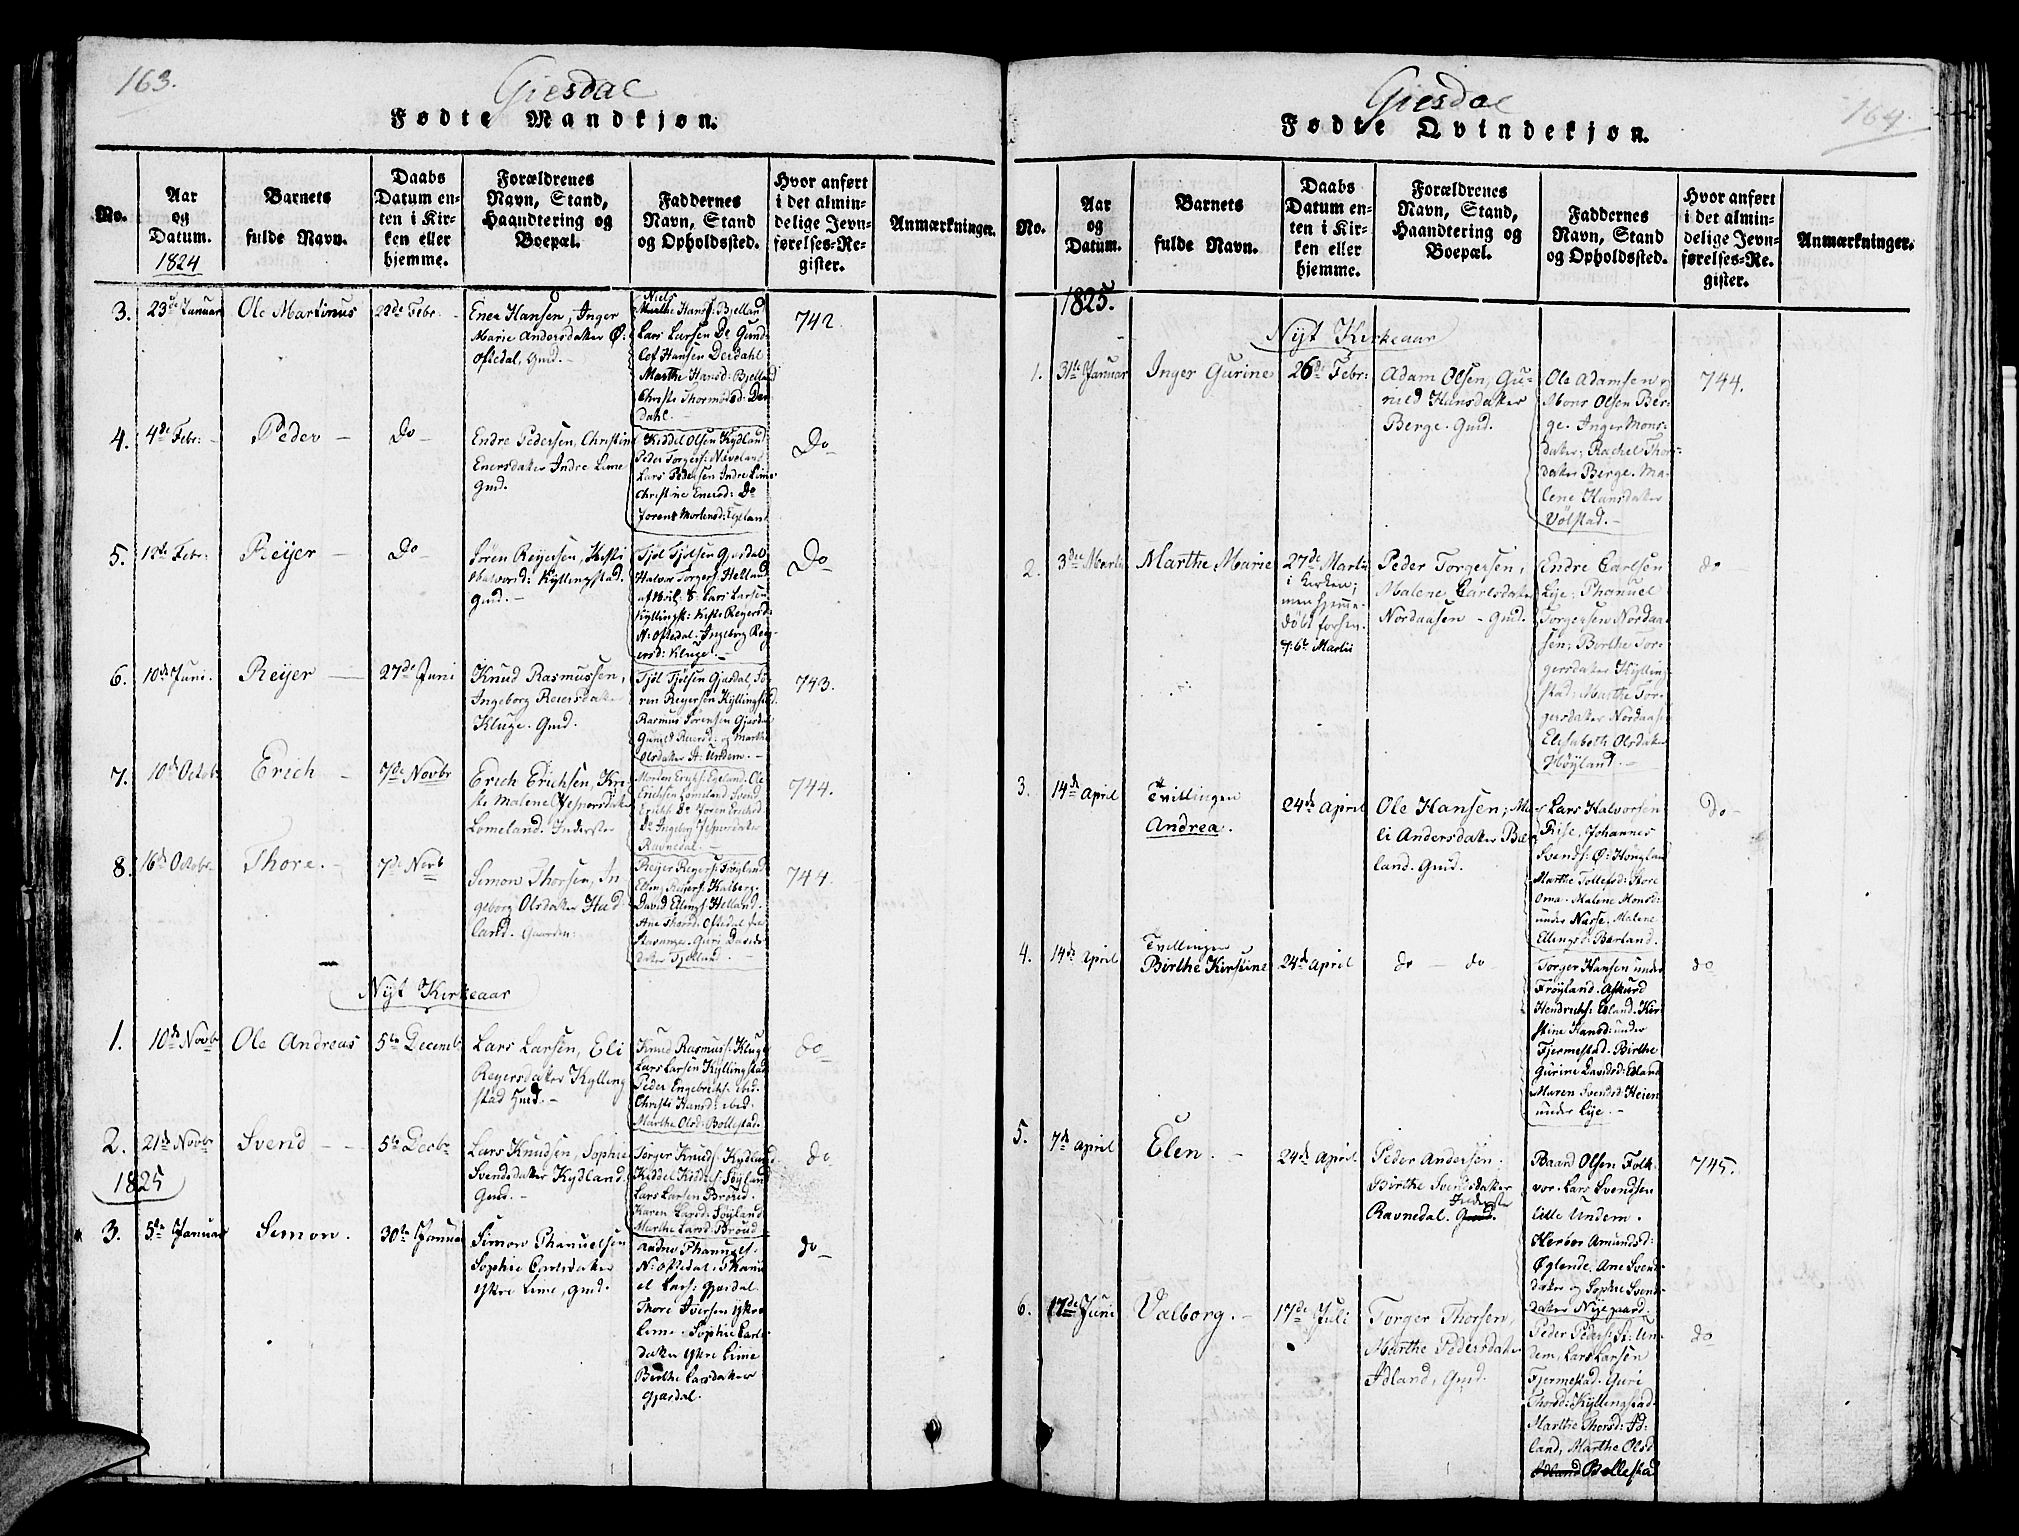 163.
Giesdal
Fødte Mandkjøn.
No.
Aar
og
Datum.
1824
Barnets
fulde Navn.
Daabs
Datum en-
ten i Kir-
ken eller
hjemme.
Forældrenes
Navn, Stand,
Haandtering og
Boepæl.
Faddernes
Navn, Stand
og Opholdssted.
Hvor anført
i det almin-
delige Jevn-
førelses-Re-
gister.
Anmærkninger.
3.
23de Januar
Ole Martinus
22de Febr.
Ener Hansen, Inger
Marie Andersdatter Ø:
Ofstedal, Gmd. -
Niels
Hans: Bjelland
Lars Larsen Do Gmd
Lof Hansen Derdahl
Marthe Hansd: Bjelland
Christi Thormodsd: Der-
dahl. -
742.
4.
4de Febr: -
Peder -
Do -
Endre Pedersen, Christine
Enersdatter Indre Lime
Gmd.
Keddel Olsen Kydland:
Peder Torgers: Næveland
Lars Pedersen Indre Lime
Christine Enersd: Do
Morlensd: Egeland
Do -
5.
12te Febr:
Reijer -
Do -
Sören Reyersen, Kisti
Halvorsd: Kyllingstad.
Gmd. -
Tjöl Tjölsen Gjesdal
Halvor Torgers: Helland
Lars Larsen
Kyllingst: Kisti Reyersd:
N: Ofstedal. Ingeborg Rey-
ersd: Kluge. -
Do -
6.
10de Juni.
Reijer -
27de Juni
Knud Rasmussen,
Ingeborg Reiersdatter
Kluge. Gmd.
Tjöl Tjölsen Gjesdal, Sö-
ren Reyersen Kyllingstad.
Rasmus Sörensen Gjesdal
Gunild Reiersd: og Marthe
Olsdatter St: Undem. -
743.
7.
10de Octob
Erich -
7de Novbr
Erich Erichsen, Kri-
sti Malene Jespersdatter
Lomeland. Inderster
Morten Erichs: Egeland. Ole
Erichsen Lomeland. Svend
Erichs: Do Joren Erichsd:
Do Ingeborg Jespersdatter
Ravnedal. -
744.
8.
16de Octobr.
Thore. -
7de Novb
Simon Thorsen, In-
geborg Olsdatter Had-
land. Gaarden:
Reyer Reyers: Fröyland
Elling Reyers: Kalberg.
David Ellings: Helland.
Ane Thorsd: Ofstedal fra
Stavanger. Guri Davids-
datter Fjelland. -
744.
Nyt Kirkeaar
1.
10de Novb
Ole Andreas
5te Decemb.
Lars Larsen, Eli
Reyersdatter Kylling-
stad Gmd. -
Knud Rasmuss: Kluge
Lars Larsen Kyllingstad
Peder Engebrechts: ibid.
Christi Hansd: ibid.
Marthe Olsd: Bollestad.
do -
2.
21de Novb
Svend -
5te Decbr
Lars Knudsen, Sophie
Svendsdatter Kydland.
Gmd. -
Torger Knuds: Kydland
Keddel Keddels: Söyland
Lars Larsen Bröud.
Karen Larsd: Söyland
Marthe Larsd: Bröud
do
1825
3.
5te Januar
Simon.
30te Januar
Simon Phanuelsen
Sophie Carlsdatter
Ytre Lime, Gmd.
Aadne Phanuels.
N: Ofstedal. Phanu-
el Lars: Gjesdal
Thore Iversen Ytre
Lime. Sophie Carls-
datter Ytre Lime
Birthe Larsdatter
Gjesdal.
do -
164.
Giesdal
Fødte Qvindekjøn.
No.
Aar
og
Datum.
Barnets
fulde Navn.
Daabs
Datum en-
ten i Kir-
ken eller
hjemme.
Forældrenes
Navn, Stand,
Haandtering og
Boepæl.
Faddernes
Navn, Stand
og Opholdssted.
Hvor anført
i det almin-
delige Jevn-
førelses-Re-
gister.
Anmærkninger.
1825.
Nyt Kirkeaar
1.
31te Januar
Inger Gurine
26de Febr:
Adam Olsen, Gu-
nild Hansdatter
Berge. Gmd.
Ole Adamsen og
Mons Olsen Ber-
ge. Inger Mons-
datter, Rachel Thors-
datter Berge. Ma-
lene Hansdatter
Vølstad. -
744.
2.
3die Martii
Marthe Marie
27de Martii
i Kirken;
men hjemme-
døbt forhen
d: 6te Martii
Peder Torgersen,
Malene Carlsdatter
Nordaasen - Gmd.
Endre Carlsen
Lye; Phanuel
Torgersen Nordaa-
sen; Berthe Tor-
gersdatter Kylling-
stad; Marthe Tor-
gersdatter Nordaasen
Elisabeth Olsdatter
Høyland. -
do
3.
14de April
Tvillingen
Andrea.
24de April
Ole Hansen; Ma-
li Andersdatter Bær-
land. Gmd.
Lars Halvorsen
Rise, Johannes
Svends: Ø: Hönland
Marthe Tollefsd: Store
Oma. Malene Monsd:
under Næsse. Malene
Ellingsd: Bærland.
Do -
4.
14de April
Tvillingen
Birthe Kirstine
24de April
do - do -
Torger Hansen under
Fröyland. Asgurd
Hendrichs: Edland. Kir-
stine Hansd: under
Fjermestad. Birthe
Gurine Davidsd: Edland
Maren Svendsd: Heien
under Lye. -
do
5.
7de April
Elen. -
24de April.
Peder Andersen,
Birthe Svendsdatter
Inderste
Ravnedal. Gmd.
Baard Olsen Folk-
vor. Lars Svendsen
Lille Undem.
Herbor Amundsd:
Öglende. Ane Svends-
datter og Sophie Svends-
datter Nygaard:
745.
6.
17de Juni
Valborg. -
17de Juli
Torger Thorsen,
Marthe Pedersdatter
Adland, Gmd.
Peder Peders: St: Un-
dem, Lars Larsen
Fjermestad. Guri
Thorsd: Kyllingstad.
Marthe Thorsd: Ad-
land, Marthe Olsd
Adland Bollestad
do